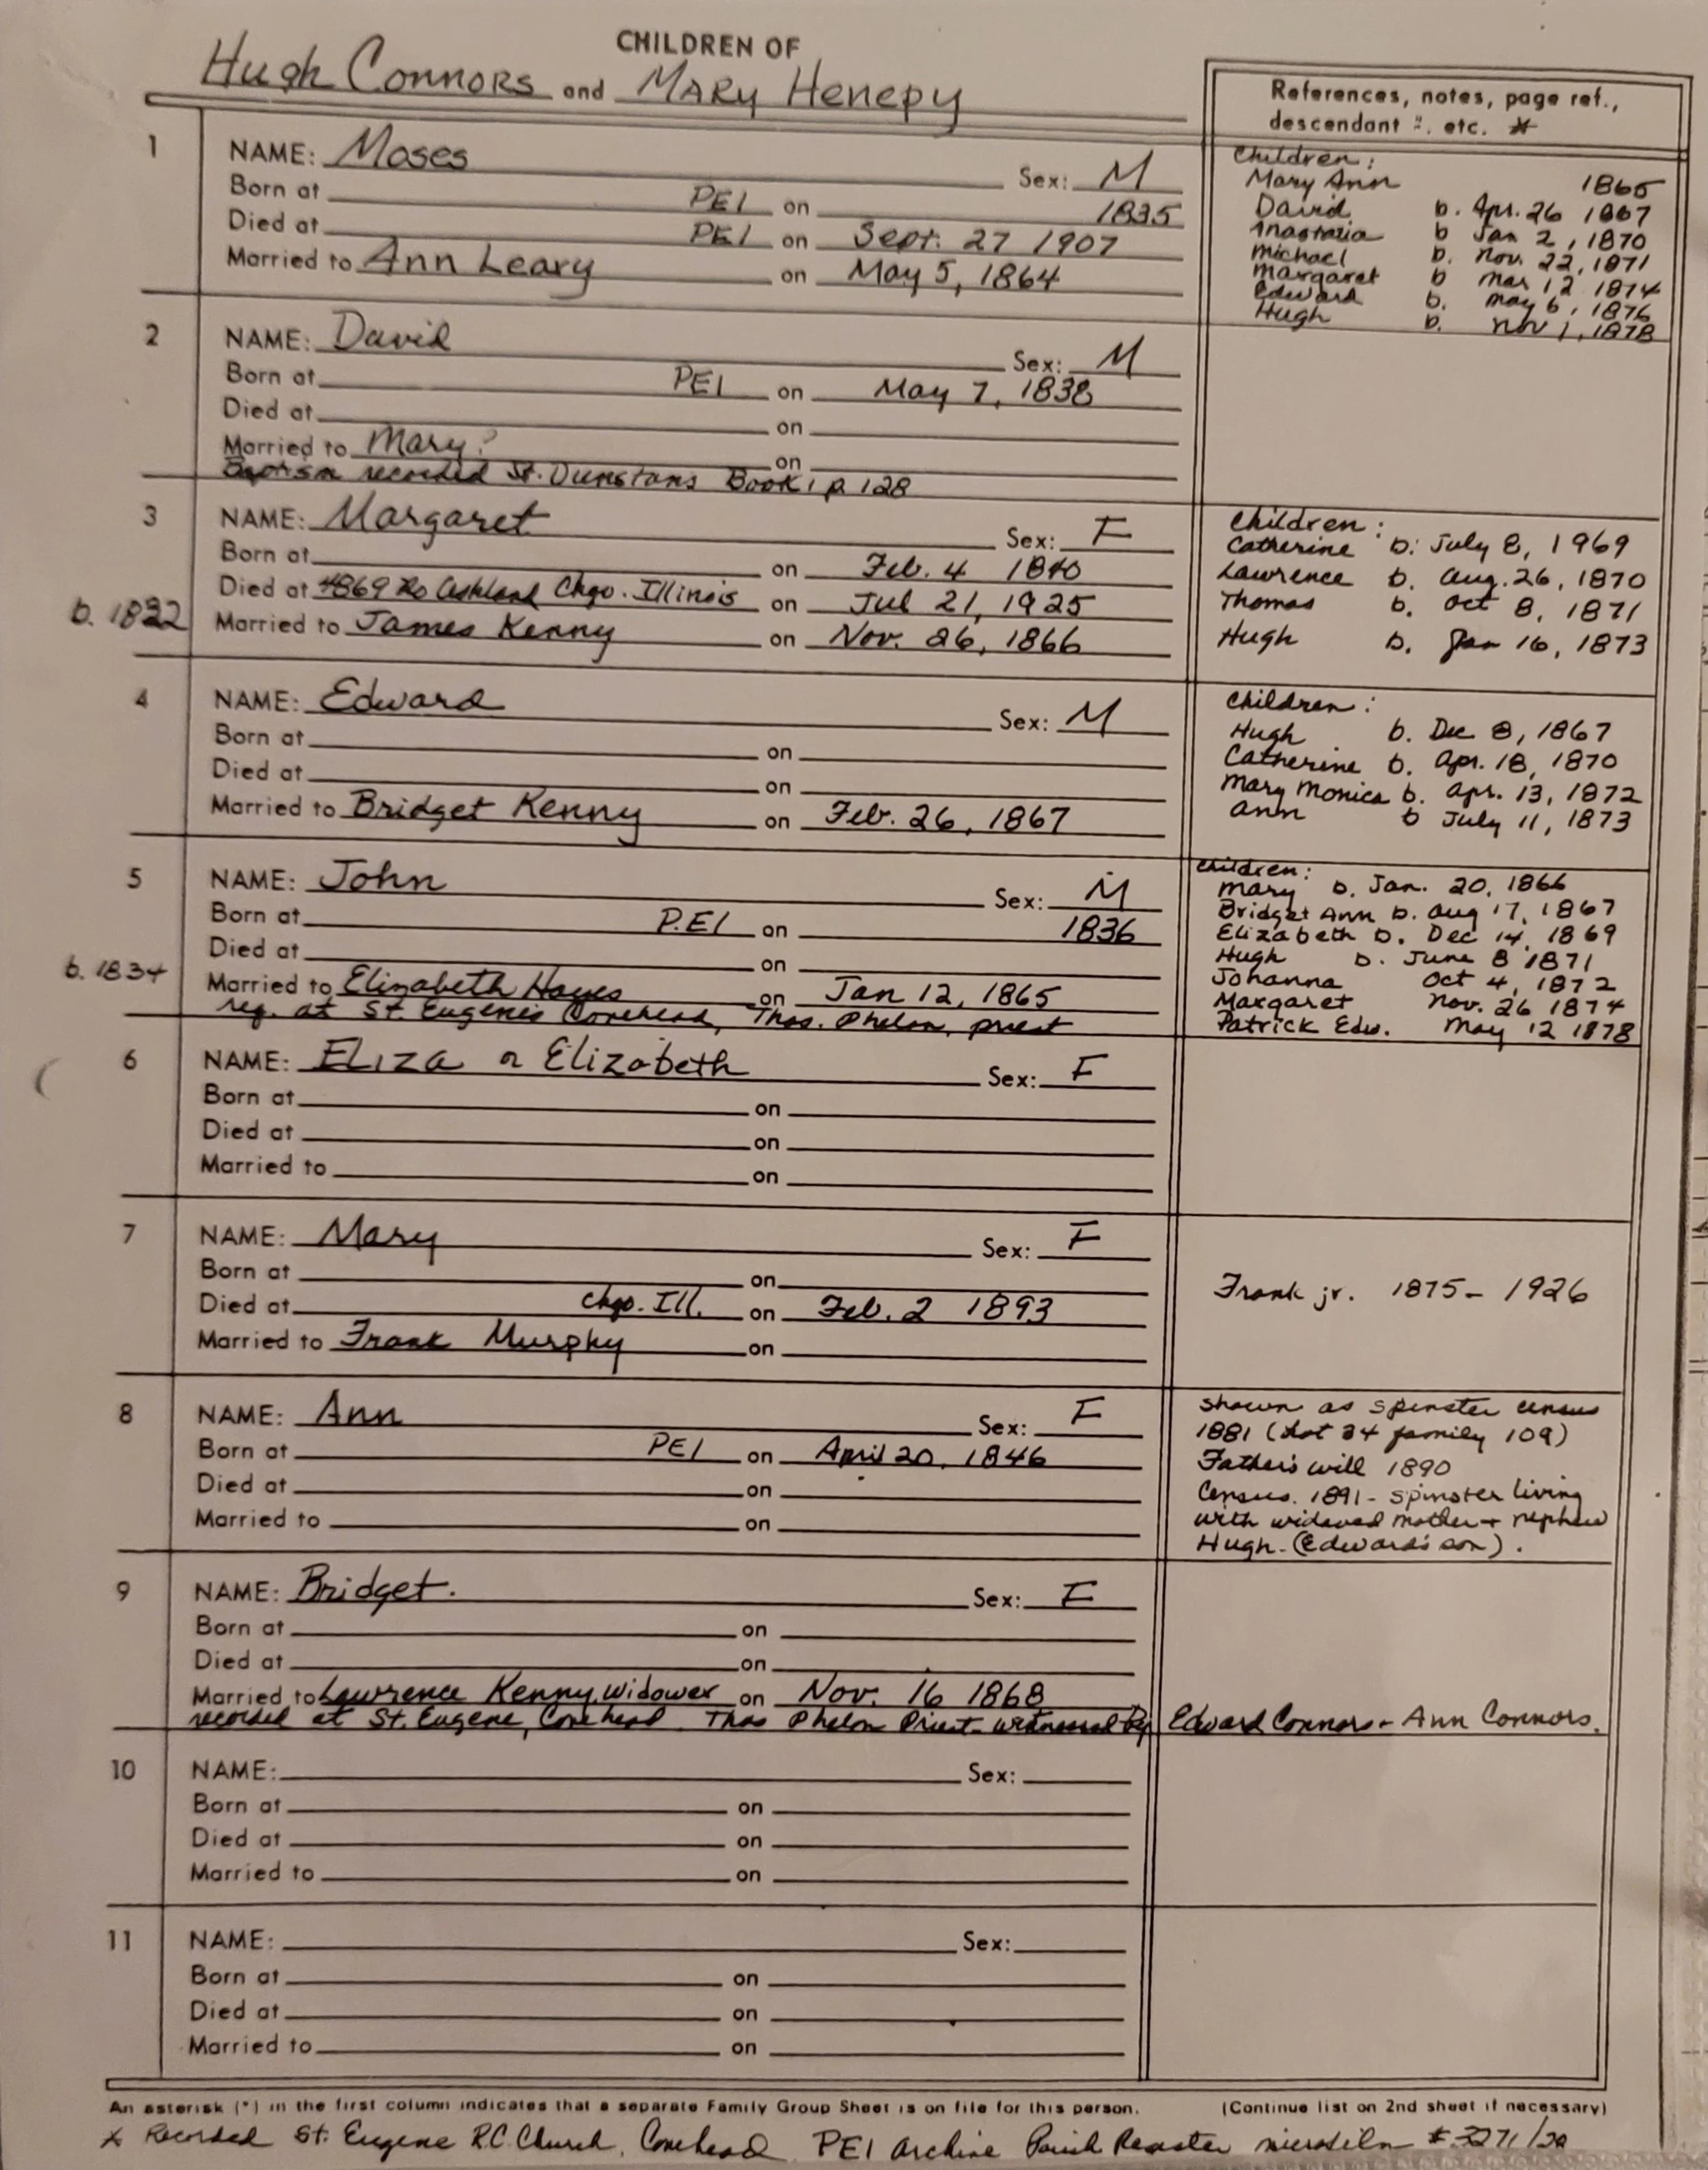 CHILDREN OF
Hugh Connors and Mary Henepy
References, notes, page ref.,
descendant #. etc. *
1
NAME: Moses Sex: M
Born at PEI on 1835
Died at PEI on Sept. 27 1907
Married to Ann Leary on May 5, 1864
Children:
Mary Ann 1865
David b. Apr. 26 1867
Anastatia b Jan 2, 1870
Michael b. Nov. 22, 1871
Margaret b Mar 12 1874
Edward b. May 6, 1876
Hugh b. Nov 1, 1878
2
NAME: David Sex: M
Born at PEI on May 7, 1838
Died at on
Married to Mary? on
Baptism recorded St. Dunstans Book 1 p 128
3
NAME: Margaret Sex: F
Born at on Feb. 4 1840
Died at 4869 No Ashland Chgo. Illinois on Jul 21, 1925
b. 1832 Married to James Kenny on Nov. 26, 1866
Children:
Catherine b: July 8, 1969
Lawrence b. Aug. 26, 1870
Thomas b. Oct 8, 1871
Hugh b. Jan 16, 1873
4
NAME: Edward Sex: M
Born at on
Died at on
Married to Bridget Kenny on Feb. 26, 1867
Children:
Hugh b. Dec 8, 1867
Catherine b. Apr. 18, 1870
Mary Monica b. Apr. 13, 1872
Ann b July 11, 1873
5
NAME: John Sex: M
Born at P.EI on 1836
Died at on
b. 1834 Married to Elizabeth Hayes on Jan 12, 1865
reg. at St. Eugenes Covehead, Thos. Phelan, priest
Children:
Mary b. Jan. 20, 1866
Bridget Ann b. Aug 17, 1867
Elizabeth b. Dec 14, 1869
Hugh b. June 8 1871
Johanna Oct 4, 1872
Margaret Nov. 26 1874
Patrick Edw. May 12 1878
6
NAME: Eliza or Elizabeth Sex: F
Born at on
Died at on
Married to on
7
NAME: Mary Sex: F
Born at on
Died at Chgo. Ill. on Feb. 2 1893
Married to Frank Murphy on
Frank jr. 1875 - 1926
8
NAME: Ann Sex: F
Born at PEI on April 20, 1846
Died at on
Married to on
shown as spinster census
1881 (Lot 34 family 109)
Father's will 1890
Census. 1891 - spinster living
with widowed mother + nephew
Hugh - (Edward's son).
9
NAME: Bridget. Sex: F
Born at on
Died at on
Married to Lawrence Kenny, widower on Nov. 16 1868
recorded at St. Eugene, Covehead. Thos Phelan Priest - witnessed by Edward Connors - Ann Connors.
10
NAME: Sex:
Born at on
Died at on
Married to on
11
NAME: Sex:
Born at on
Died at on
Married to on
An asterisk (*) in the first column indicates that a separate Family Group Sheet is on file for this person. (Continue list on 2nd sheet if necessary)
* Recorded St. Eugene R.C. Church, Covehead PEI Archive Parish Register microfilm